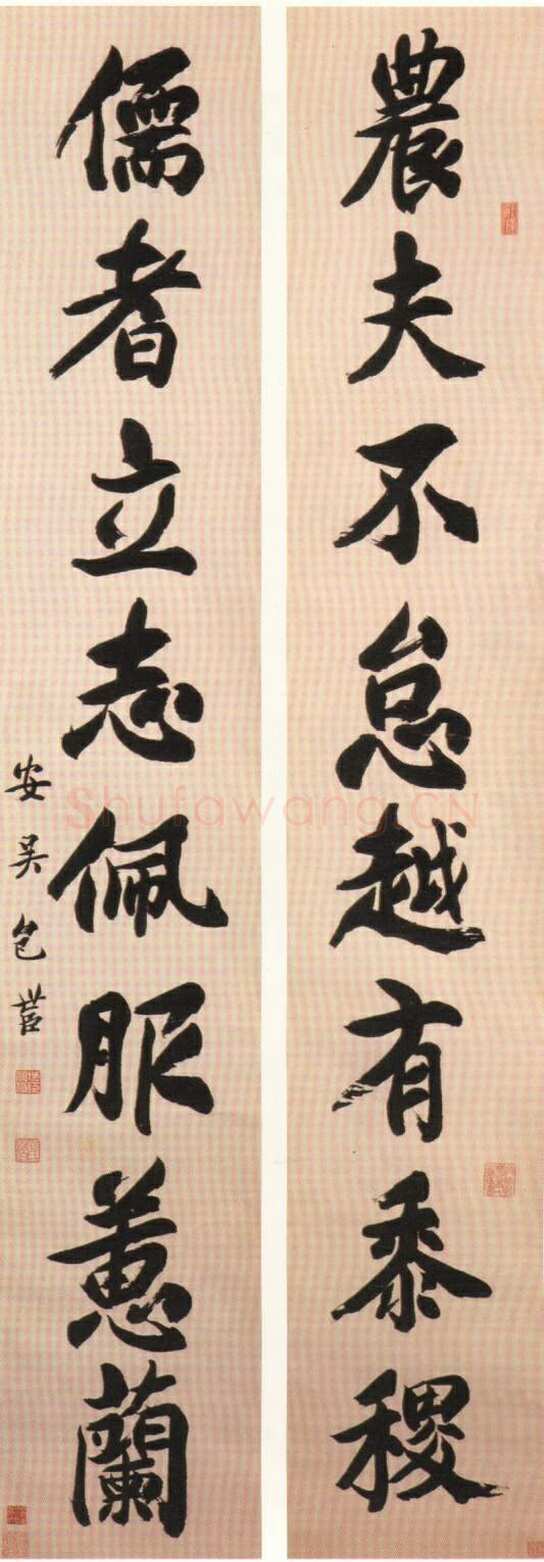 農夫不怠越有黍稷
儒者立志佩服蕙蘭
安吳包世臣
Shufawang.CN